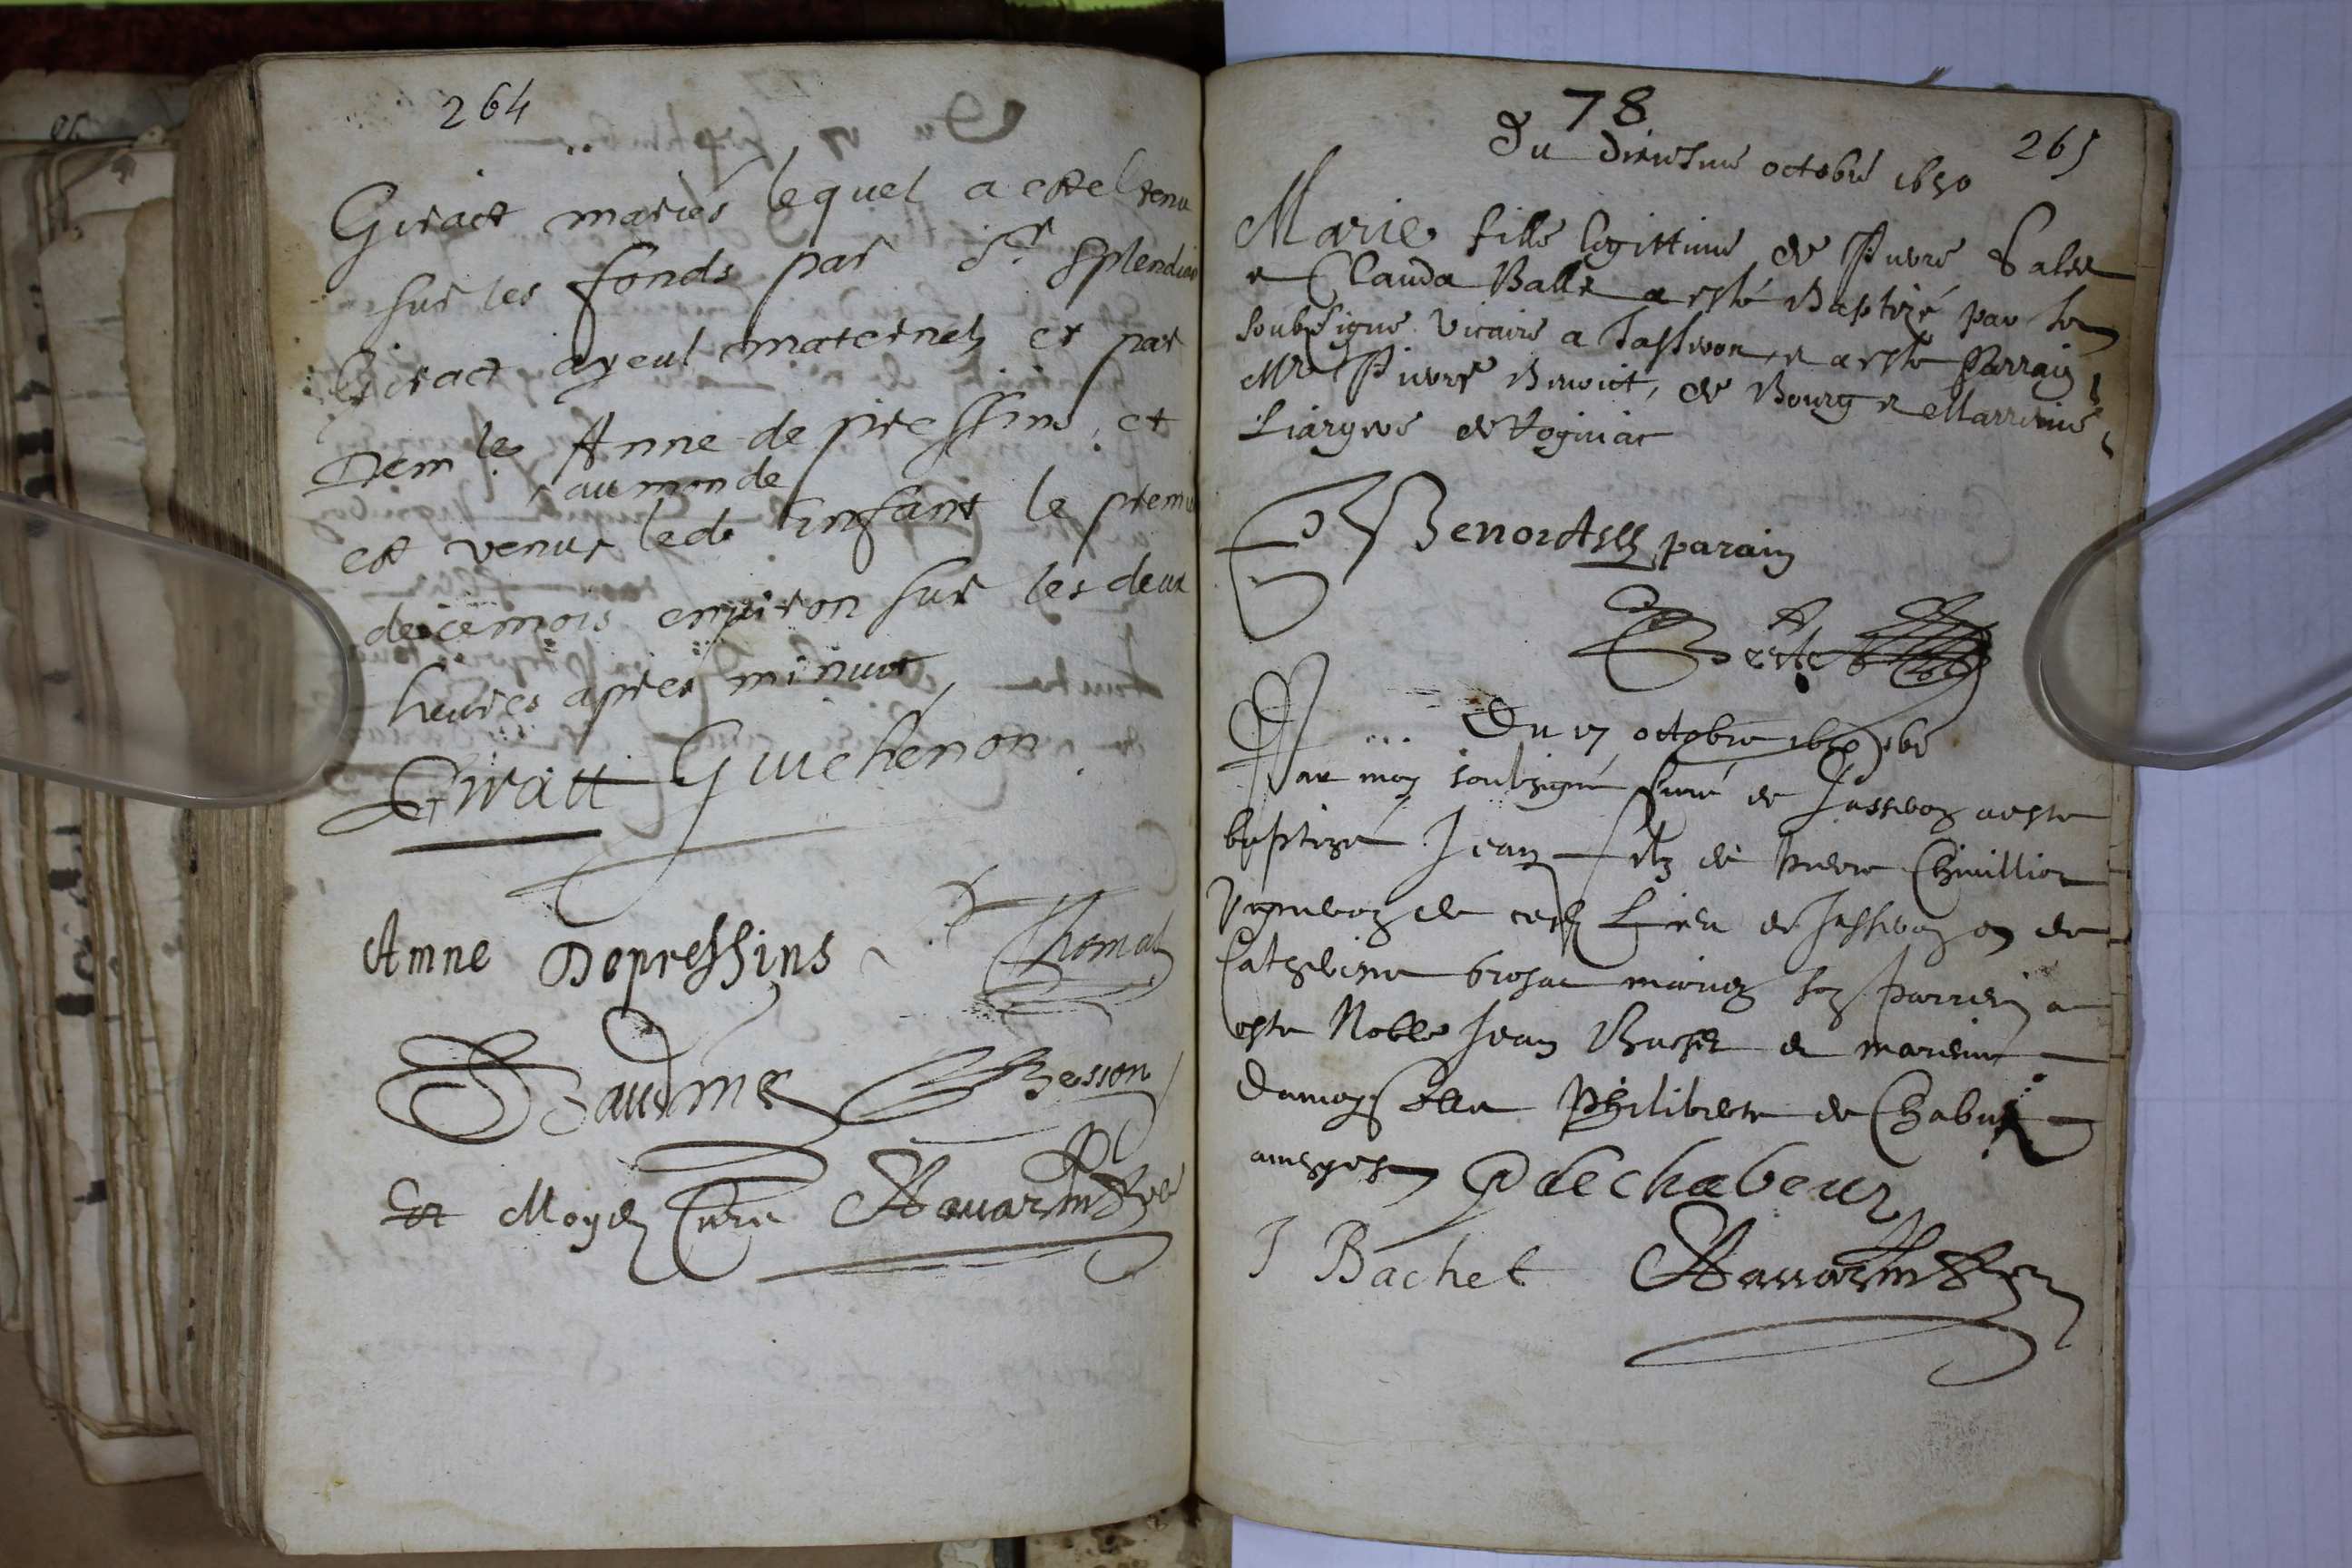 264
Giract mariés lequel a esté tenu
sur les fonds par Sr Splendian
Giract ayeul maternel et par
Demle Anne de pressins et
au monde
est venus led. infant le premie
de ce mois environ sur les deux
heures apres minuit
Giratt Guichenon
Anne Depressins Thomas
Baudme Besson
Et Moy Curé
78
265
Du diziesme octobre 1650
Marie fille legittime de Pierre
e Clauda Balle a esté Baptizé par le
soubsigne Vicaire a Jasseron e a esté Parrain
Mr Pierre Benoict, de Bourg e Marrenne
Benoict parain
Du 17 octobre 1650
Par moy soubsigné Curé de Jasseron a este
baptizé Jean filz de Pierre Chivillion
Vigneron de ced. Lieu de Jasseron et de
Catherine mariez son Parrein a
este Noble Jean Bachet et mareine
damoyselle Philiberte de Chabeu
P de chabeuz
J Bachet